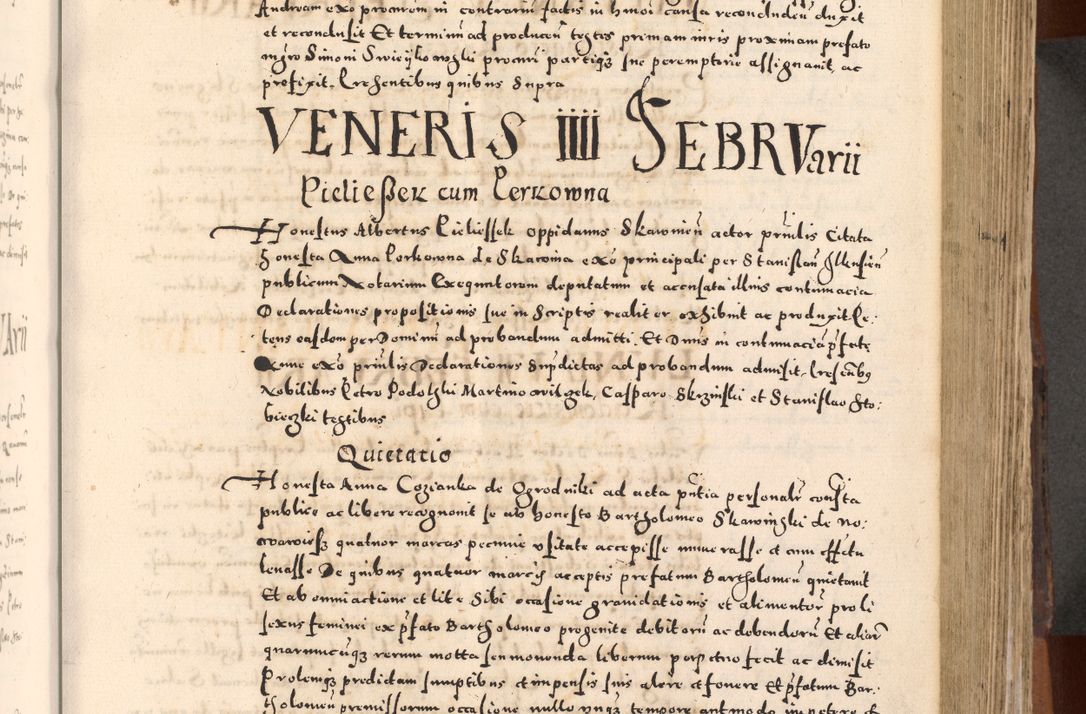 Andream ex̄o procurem in contrariu͂ factis in hmōi causa recondudeñ duxit
et recondusit Et terminū ad producen̄ testes primam iuris proximam prefato
mgr̄o Simoni Swieykowski procuri partiq3 sue peremptorie assignauit, ac
profixit. Presentibus quibus supra
VENERIS IIII FEBRVarii
Pielieszek cum Perkowna
Honestus Albertus Pieliessek oppidanus Skawinieñ actor prn̄lis Citata
Honesta Anna Perkowna de Skawina exo͂ principali per Stanislau͂ Ilkusieñ
publicum Notarium Exequutorem deputatum et accusata illius contumacia
Declarationes propositionis sue in Scriptis realiter exhibuit ac produxit Pe:
tens easdem per Dominū ad probandum admitti, Et Dn̄us in contumaciā pr̄fate
Anne ex̄o prn̄lis Declarationes supdictas ad probandum admisit. Presentibus
Nobilibus Petro Podolski Martino Casparo Skrzinski et Stanislao Sto:
bieczki testibus
Quietatio
Honesta Anna Cozianka de Ogrodniki ad acta pn̄tia personalr̄ consta
publice ac libere recognouit se ab honesto Bartholomeo Skawinski de No:
wawiesz quatuor marcas pecunie vsitate accepisse numerasse et cum effectu
leuasse De quibus quatuor marcis acceptis prefatum Bartholomeū quietauit
Et ab omni actione et lite Sibi occasione grauidationis et alimentor̄ proli
sexus feminei ex pr̄fato Bartholomeo progenite debitorū ac debendorū Et aliar̄
quarumcuq3 rerum motta seu mouenda liberum perpetuo fecit ac dimisit
Prolemq3 predictam sumptibus et impensis suis alere et fouere Et pr̄fatum Bar:
tholomeū premissorum occasione nullo vnq3 tempore aut modo impetere et